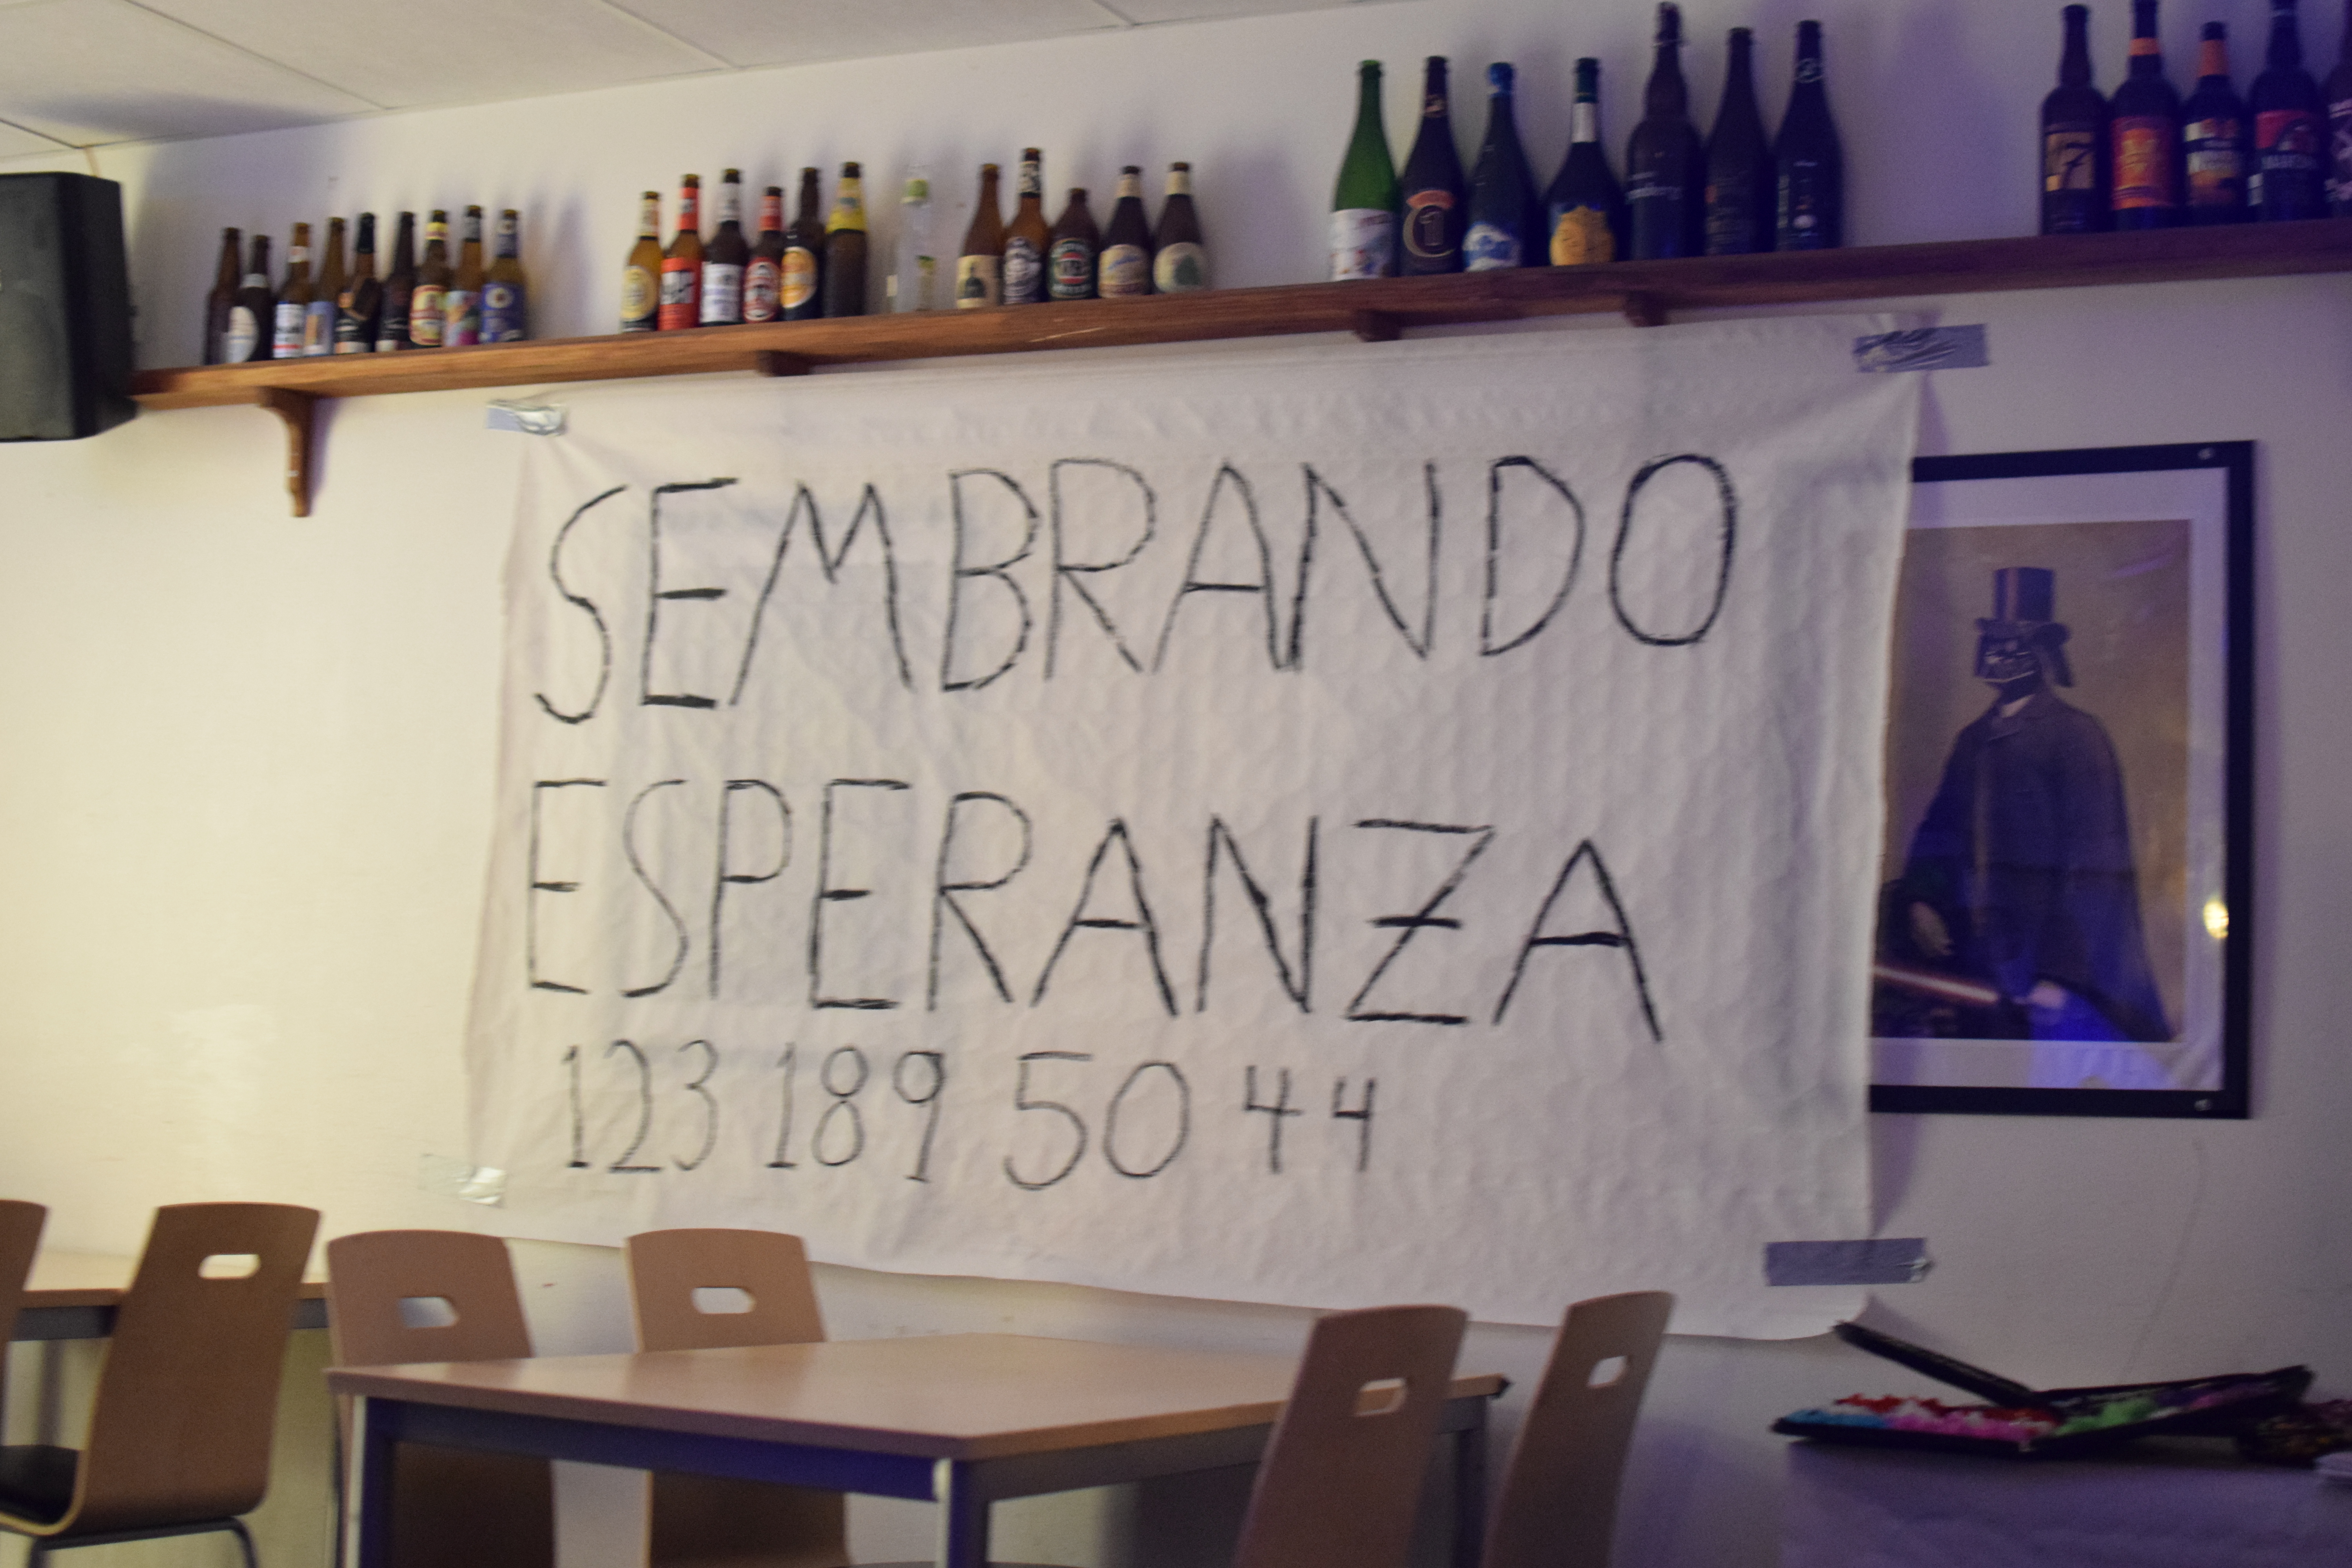 SEMBRANDO
ESPERANZA
123 189 50 44